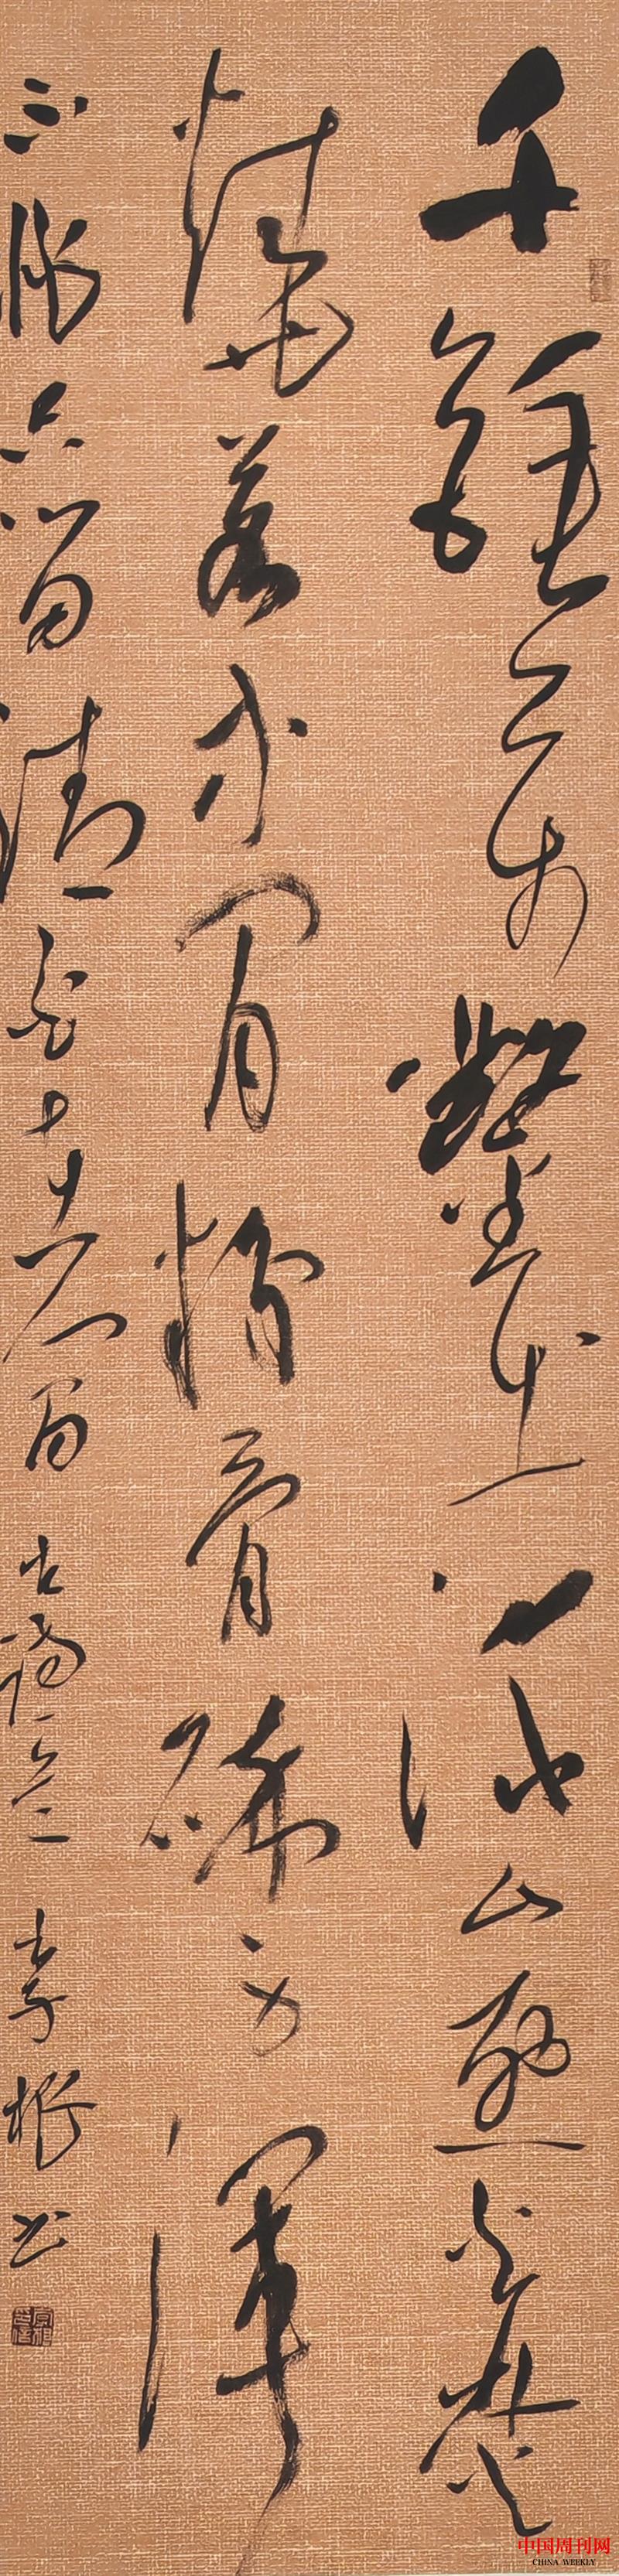 千锤万凿出深山烈火焚
烧若等闲粉骨碎身浑
不怕要留清白在人间古诗一首李根书
中国周刊网
CHINA WEEKLY